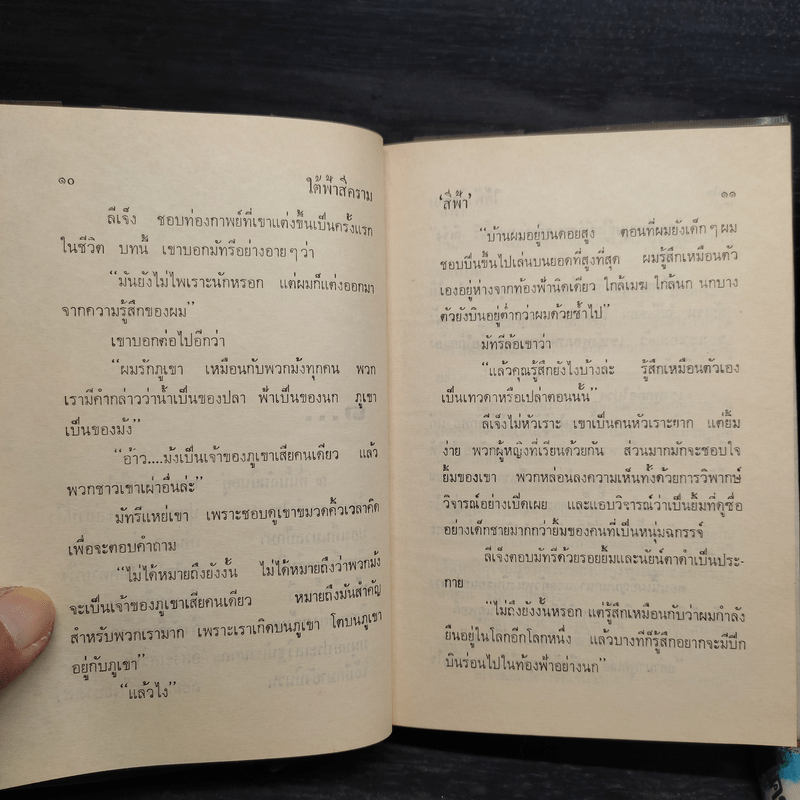 ๑๐
ใต้ฟ้าสีคราม
ลีเจ็ง ชอบท่องกาพย์ที่เขาแต่งขึ้นเป็นครั้งแรก
ในชีวิต บทนี้ เขาบอกมัทรีอย่างอายๆว่า
“มันยังไม่ไพเราะนักหรอก แต่ผมก็แต่งออกมา
จากความรู้สึกของผม”
เขาบอกต่อไปอีกว่า
“ผมรักภูเขา เหมือนกับพวกม้งทุกคน พวก
เรามีคำกล่าวว่าน้ำเป็นของปลา ฟ้าเป็นของนก ภูเขา
เป็นของม้ง”
“อ้าว....ม้งเป็นเจ้าของภูเขาเสียคนเดียว แล้ว
พวกชาวเขาเผ่าอื่นล่ะ”
มัทรีแหย่เขา เพราะชอบดูเขาขมวดคิ้วเวลาคิด
เพื่อจะตอบคำถาม
“ไม่ได้หมายถึงยังงั้น ไม่ได้หมายถึงว่าพวกม้ง
จะเป็นเจ้าของภูเขาเสียคนเดียว หมายถึงมันสำคัญ
สำหรับพวกเรามาก เพราะเราเกิดบนภูเขา โตบนภูเขา
อยู่กับภูเขา”
“แล้วไง”
‘สีฟ้า’
๑๑
“บ้านผมอยู่บนดอยสูง ตอนที่ผมยังเด็กๆผม
ชอบปีนขึ้นไปเล่นบนยอดที่สูงที่สุด ผมรู้สึกเหมือนตัว
เองอยู่ห่างจากท้องฟ้านิดเดียว ใกล้เมฆ ใกล้นก นกบาง
ตัวยังบินอยู่ต่ำกว่าผมด้วยซ้ำไป”
มัทรีล้อเขาว่า
“แล้วคุณรู้สึกยังไงบ้างล่ะ รู้สึกเหมือนตัวเอง
เป็นเทวดาหรือเปล่าตอนนั้น”
ลีเจ็งไม่หัวเราะ เขาเป็นคนหัวเราะยาก แต่ยิ้ม
ง่าย พวกผู้หญิงที่เรียนด้วยกัน ส่วนมากมักจะชอบใจ
ยิ้มของเขา พวกหล่อนลงความเห็นทั้งด้วยการวิพากษ์
วิจารณ์อย่างเปิดเผย และแอบวิจารณ์ว่าเป็นยิ้มที่ดูซื่อ
อย่างเด็กชายมากกว่ายิ้มของคนที่เป็นหนุ่มฉกรรจ์
ลีเจ็งตอบมัทรีด้วยรอยยิ้มและนัยน์ตาดำเป็นประ-
กาย
“ไม่ถึงยังงั้นหรอก แต่รู้สึกเหมือนกับว่าผมกำลัง
ยืนอยู่ในโลกอีกโลกหนึ่ง แล้วบางทีก็รู้สึกอยากจะมีปีก
บินร่อนไปในท้องฟ้าอย่างนก”